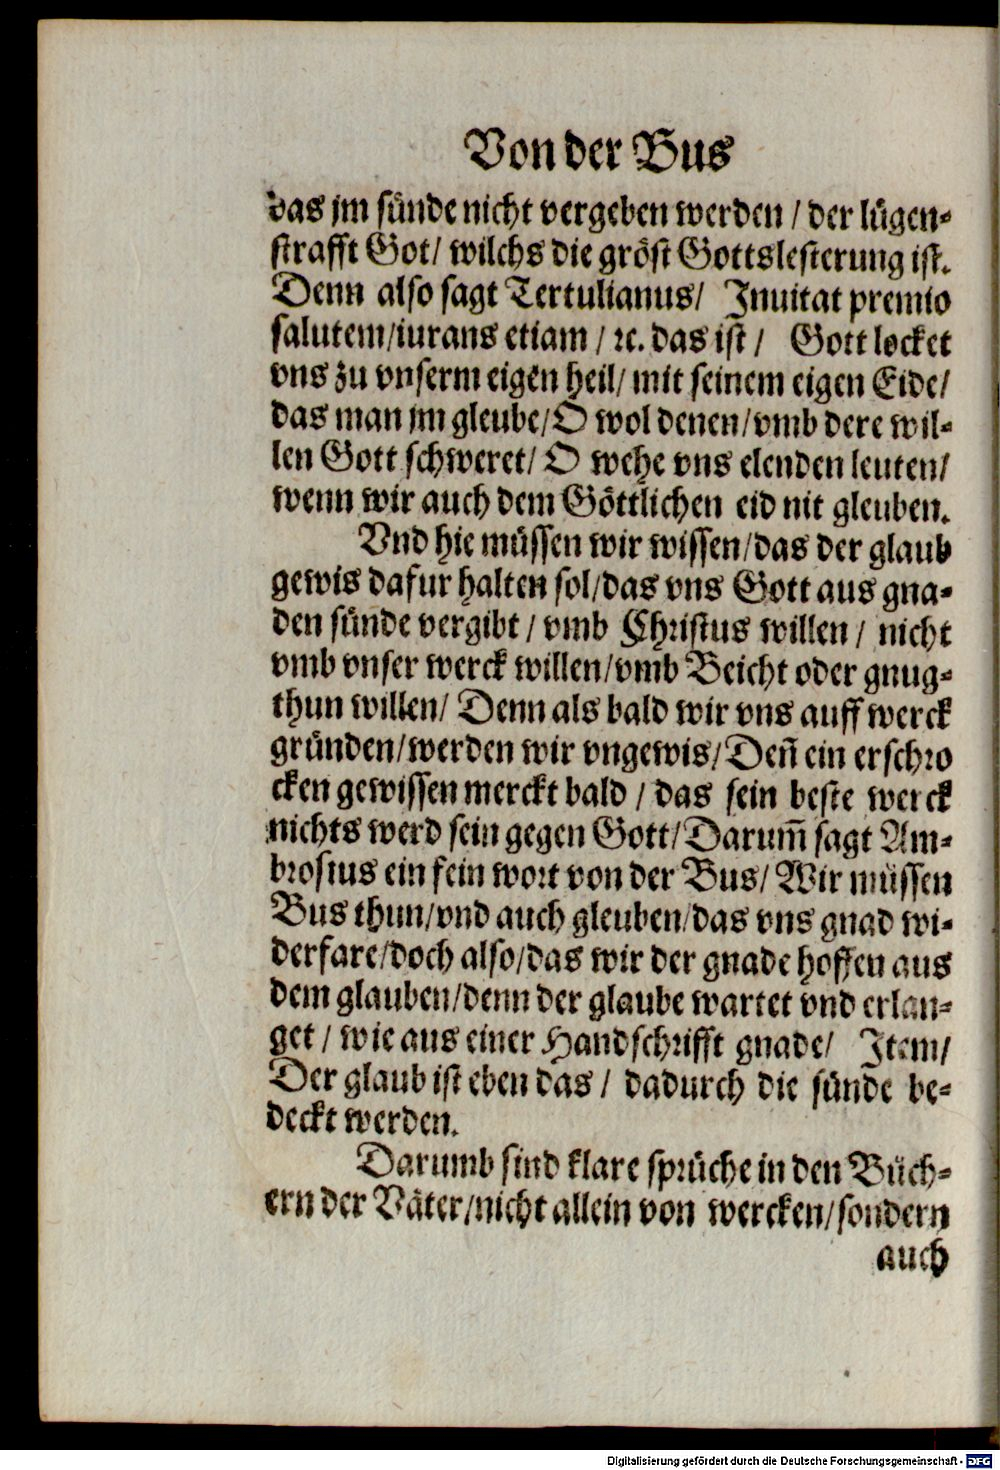 Von der Bus
das jm sünde nicht vergeben werden / der lügen-
strafft Got/ wilchs die gröst Gottslesterung ist.
Denn also sagt Tertulianus/ Inuitat premio
salutem/iurans etiam / ꝛc. das ist / Gott locket
vns zu vnserm eigen heil/ mit seinem eigen Eide/
das man jm gleube/O wol denen/vmb dere wil-
len Gott schweret/ O wehe vns elenden leuten/
wenn wir auch dem Göttlichen eid nit gleuben.
Vnd hie müssen wir wissen/das der glaub
gewis dafur halten sol/das vns Gott aus gna-
den sünde vergibt / vmb Christus willen / nicht
vmb vnser werck willen/vmb Beicht oder gnug-
thun willen/ Denn als bald wir vns auff werck
gründen/werden wir vngewis/Deñ ein erschro
cken gewissen merckt bald / das sein beste werck
nichts werd sein gegen Gott/Darum̃ sagt Am-
brosius ein fein wort von der Bus/ Wir müssen
Bus thun/vnd auch gleuben/das vns gnad wi-
derfare/doch also/das wir der gnade hoffen aus
dem glauben/denn der glaube wartet vnd erlan-
get / wie aus einer Handschrifft gnade/ Item/
Der glaub ist eben das / dadurch die sünde be-
deckt werden.
Darumb sind klare sprüche in den Büch-
ern der Väter/nicht allein von wercken/sondern
auch
Digitalisierung gefördert durch die Deutsche Forschungsgemeinschaft - DFG